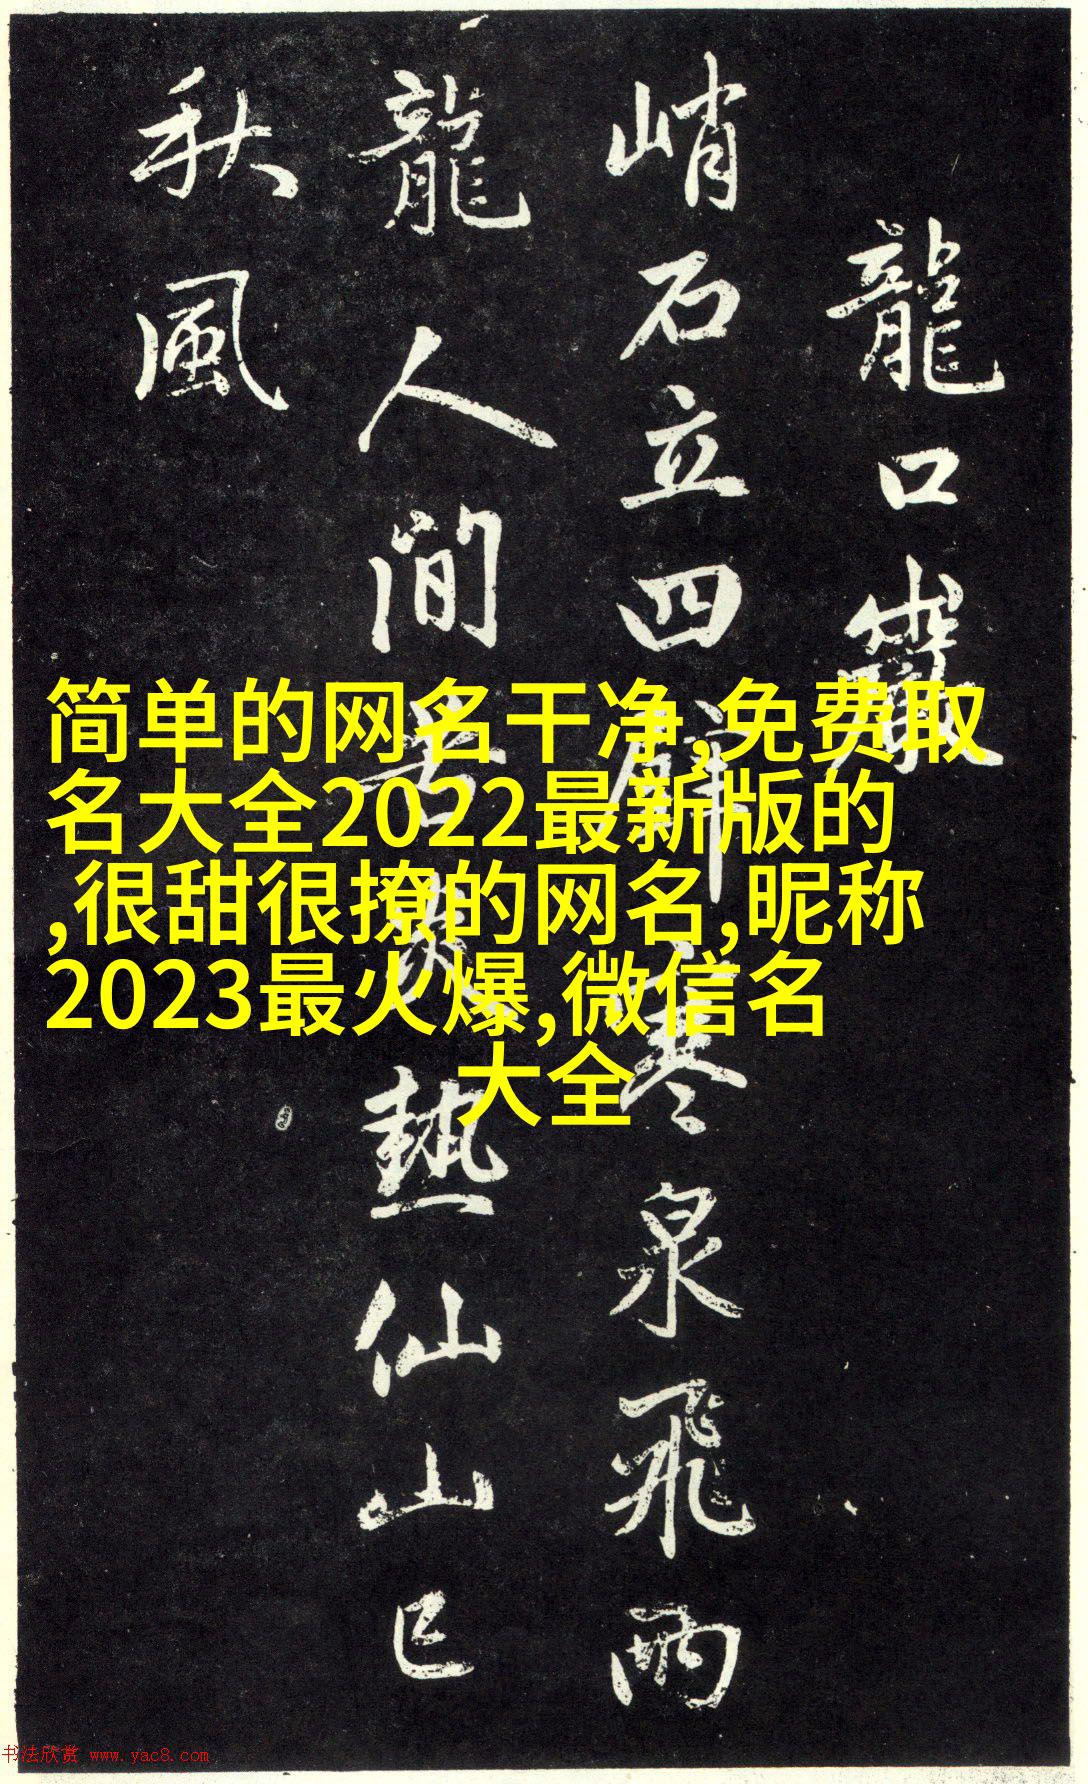 龍口
峭石立四 寒泉飛兩
龍人間苦 熱仙山已
秋風
简单的网名干净,免费取
名大全2022最新版的
,很甜很撩的网名,昵称
2023最火爆,微信名
大全
书法欣赏 www.yac8.com